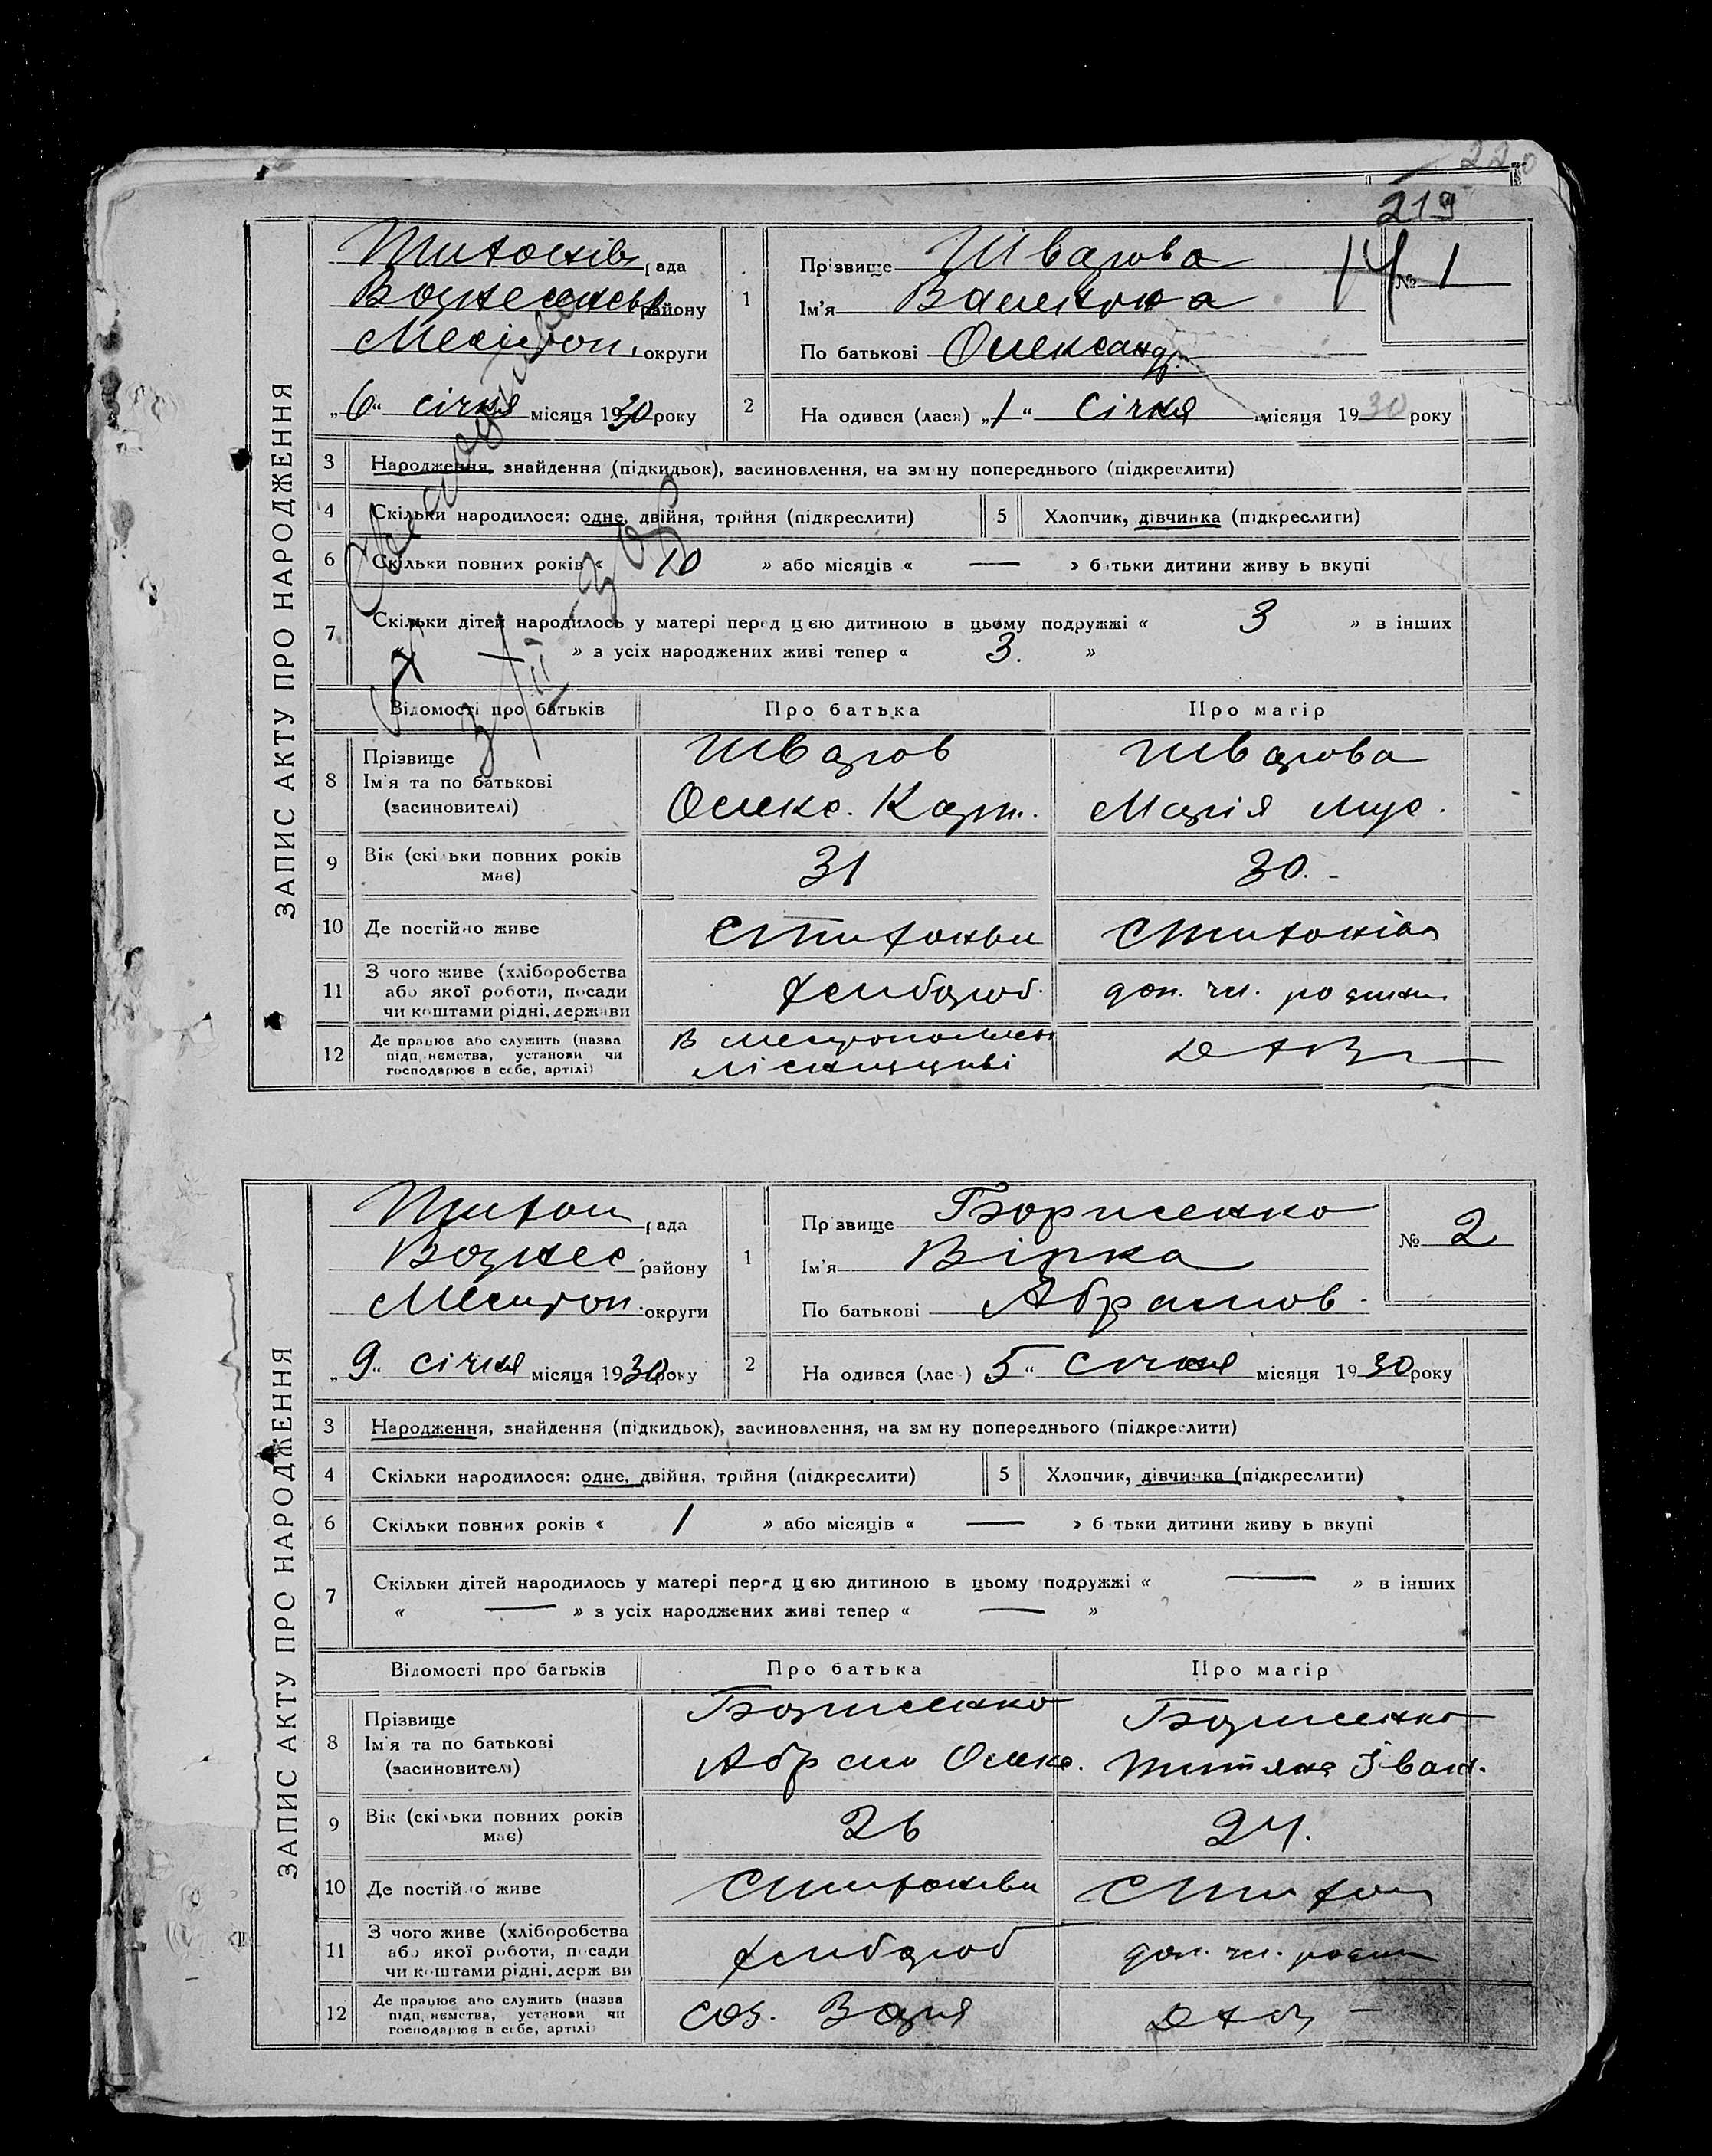 220
219
ЗАПИС АКТУ ПРО НАРОДЖЕННЯ
рада
району
Мелітоп. округи
„6“ січня місяця 1930 року
1
Прізвище Шварова
Ім'я
По батькові Олександр.
№ 1
2
На одився (лася) „1“ Січня місяця 1930 року
3 Народження, знайдення (підкидьок), засиновлення, на зм ну попереднього (підкреслити)
4 Скільки народилося: одне, двійня, трійня (підкреслити) 5 Хлопчик, дівчинка (підкреслити)
6 Скільки повних років « 10 » або місяців « — » б тьки дитини живу ь вкупі
7 Скільки дітей народилось у матері перед цією дитиною в цьому подружжі « 3 » в інших
« — » з усіх народжених живі тепер « 3. »
Відомості про батьків Про батька Про матір
8 Прізвище
Ім'я та по батькові
(засиновителі)
Шваров
Олекс. Карп.
Шварова
Марія
9 Вік (скі ьки повних років
має)
31
30.
10 Де постійно живе
11 З чого живе (хліборобства
або якої роботи, посади
чи коштами рідні, держави
хлібороб.
доп. чл. родини
12 Де працює або служить (назва
підп иємства, установи чи
господарює в себе, артілі)
ЗАПИС АКТУ ПРО НАРОДЖЕННЯ
рада
Вознес. району
Мелітоп. округи
„9“ січня місяця 1930 року
1
Пр звище Борисенко
Ім'я Вірка
По батькові Абрамов.
№ 2
2
На одився (лас ) 5“ Січня місяця 1930 року
3 Народження, знайдення (підкидьок), засиновлення, на зм ну попереднього (підкреслити)
4 Скільки народилося: одне, двійня, трійня (підкреслити) 5 Хлопчик, дівчинка (підкреслити)
6 Скільки повних років « 1 » або місяців « — » б тьки дитини живу ь вкупі
7 Скільки дітей народилось у матері перед цією дитиною в цьому подружжі « — » в інших
« — » з усіх народжених живі тепер « — »
Відомості про батьків Про батька Про матір
8 Прізвище
Ім'я та по батькові
(засиновителі)
Борисенко
Абрам Олекс.
Борисенко
Титяна Іван.
9 Вік (скі ьки повних років
має)
26
24.
10 Де постій о живе
11 З чого живе (хліборобства
або якої роботи, посади
чи коштами рідні, держ ви
хлібороб
доп. чл. родини
12 Де працює або служить (назва
підп иємства, установи чи
господарює в себе, артілі)
соз. Заря